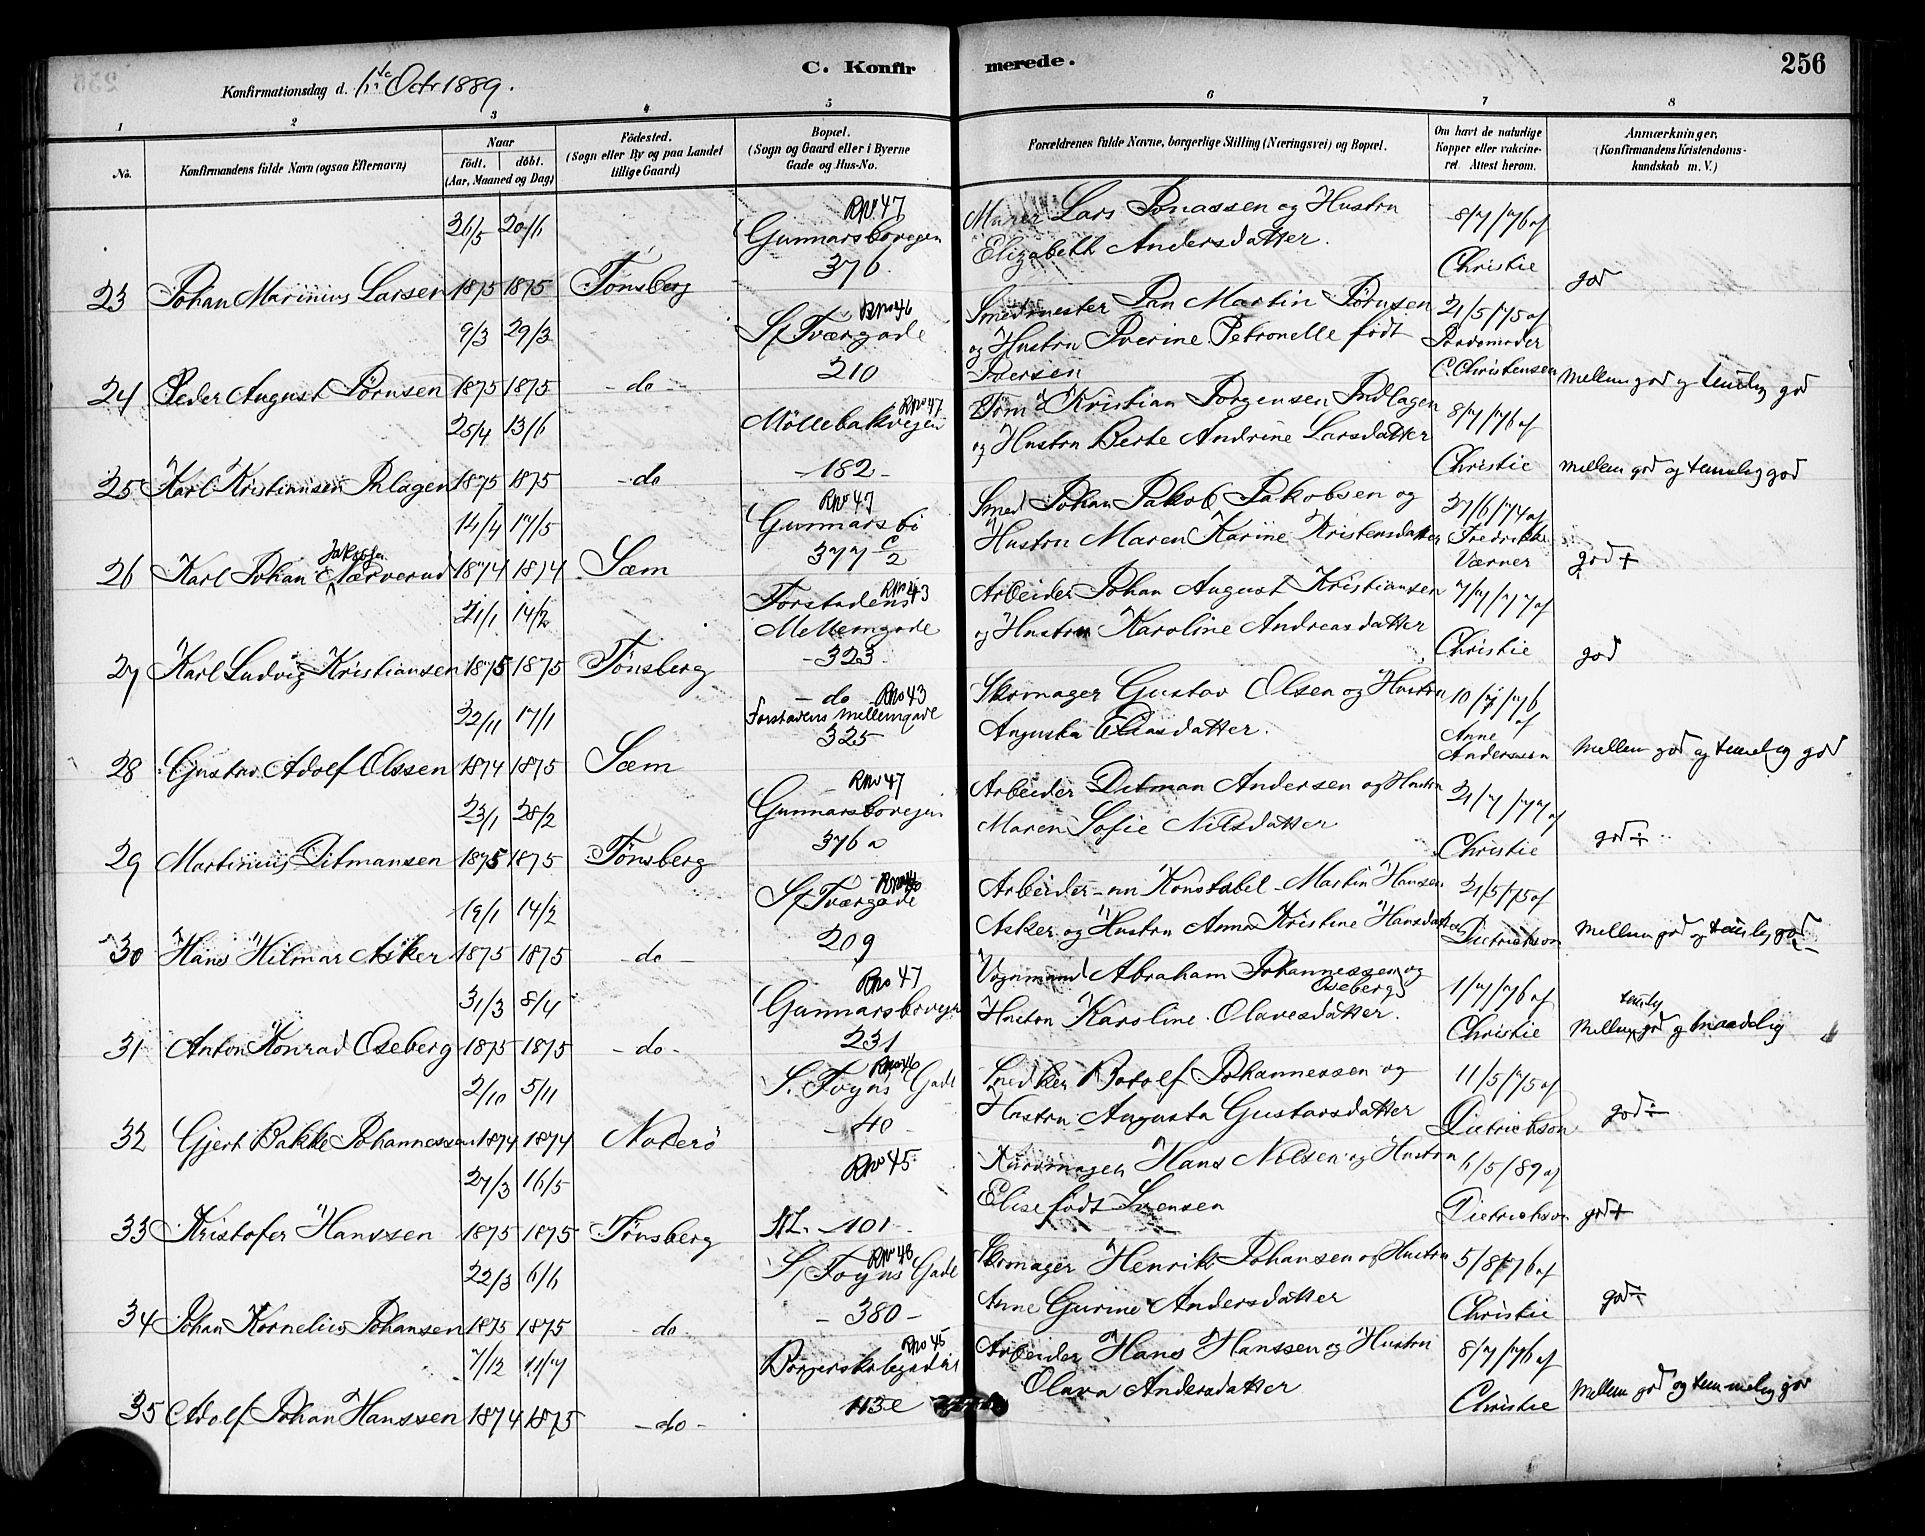 C. Konfir
merede.
256
Konfirmationsdag d. 1ste Octr 1889.
1 2 3 4 5 6 7 8
No.
Konfirmandens fulde Navn (ogsaa Efternavn)
Naar
födt. döbt.
(Aar, Maaned og Dag)
Födested.
(Sogn eller By og paa Landet
tillige Gaard)
Bopæl.
(Sogn og Gaard eller i Byerne
Gade og Hus-No.
Forældrenes fulde Navne, borgerlige Stilling (Næringsvei) og Bopæl.
Om havt de naturlige
Kopper eller vakcine-
ret. Attest herom.
Anmærkninger.
(Konfirmandens Kristendoms-
kundskab m. V.)
26/5 20/6 Rno 47 Murer Lars Jonassen og Hustru 8/7/76 af
Gunnarsbovegen Elizabeth Andersdatter.
23 Johan Marinius Larsen 1875 1875 Tønsberg 376. Christie god
9/3 29/3 Rno 46 Smedmester Jan Martin Jörnsen 21/5/75 af
S/Tværgade og Hustru Iverine Petronelle født Jordemoder
24 Peder August Jörnsen 1875 1875 - do - 210 Iversen C. Christensen Mellem god og temelig god
25/4 13/6 Rno 47 Töm: Kristian Jorgensen Indlagen 8/7/76 af
Möllebakvejen og Hustru Berte Andrine Larsdatter
25 Karl Kristiansen Ilagen 1875 1875 - do - 182 - Christie mellem god og temelig god
14/4 17/5 Rno 47 Smed Johan Jakob Jakobsen og 27/6/74 af
Gunnarsbö Hustru Maren Karine Kristensdatter Fredrikke
26 Karl Johan Jakobsen Narverud 1874 1874 Sæm 377 C/2 Værner god +
21/1 14/2 Rno 43 Arbeider Johan August Kristiansen 7/7/77 af
Forstadens Mellemgade og Hustru Karoline Andreasdatter
27 Karl Ludvig Kristiansen 1875 1875 Tønsberg - 323. Christie god
22/11 17/1 - do - Rno 43 Skomager Gustav Olsen og Hustru 10/7/76 af
Forstadens Mellemgade Augusta Eliasdatter. Anne
28 Gustav Adolf Olssen 1874 1875 Sæm 325 Anderssen Mellem god og temelig god
23/1 28/2 Rno 47 Arbeider Ditman Andersen og Hustru 21/7/77 af
Gunnarsbovejen Maren Sofie Nilsdatter
29 Martinius Ditmansen 1875 1875 Tønsberg 376 a Christie god ÷
19/1 14/2 Rno 46 Arbeider - nu Konstabel - Martin Hansen 21/5/75 af
S/Tværgade Asker og Hustru Anna Kristine Hansdatter
30 Hans Hilmar Asker 1875 1875 - do - 209 Dietrichson Mellem god og temelig god
31/3 8/4 Rno 47 Vognmand Abraham Johannessen og 1/7/76 af
Gunnarsbovejen Oseberg Hustru Karoline Olavesdatter.
31 Anton Konrad Oseberg 1875 1875 - do - 231 Christie Mellem temly god og maadelig
2/10 5/11 Rno 46 Snedker Botolf Johannessen og 11/5/75 af
S. Foyns Gade Hustru Augusta Gustavsdatter
32 Gjert Bakke Johannessen 1874 1874 Noterö - 40 - Dietrichson god ÷
27/3 16/5 Rno 45 Hans Nilsen og Hustru 6/5/89 af
Elise født Svensen
33 Kristofer Hanssen 1875 1875 Tönsberg 101 - Dietrichson god +
22/3 6/6 S/Foyns Gade Skomager Henrik Johansen og Hustru 5/8/76 af
Anne Gurine Andersdatter
34 Johan Kornelius Johansen 1875 1875 - do - - 380 - Christie god ÷
7/12 11/7 Rno 45 Arbeider Hans Hanssen og Hustru 8/7/76 af
Olava Andersdatter
35 Adolf Johan Hanssen 1874 1875 - do - 113 e Christie Mellem god og temmelig god